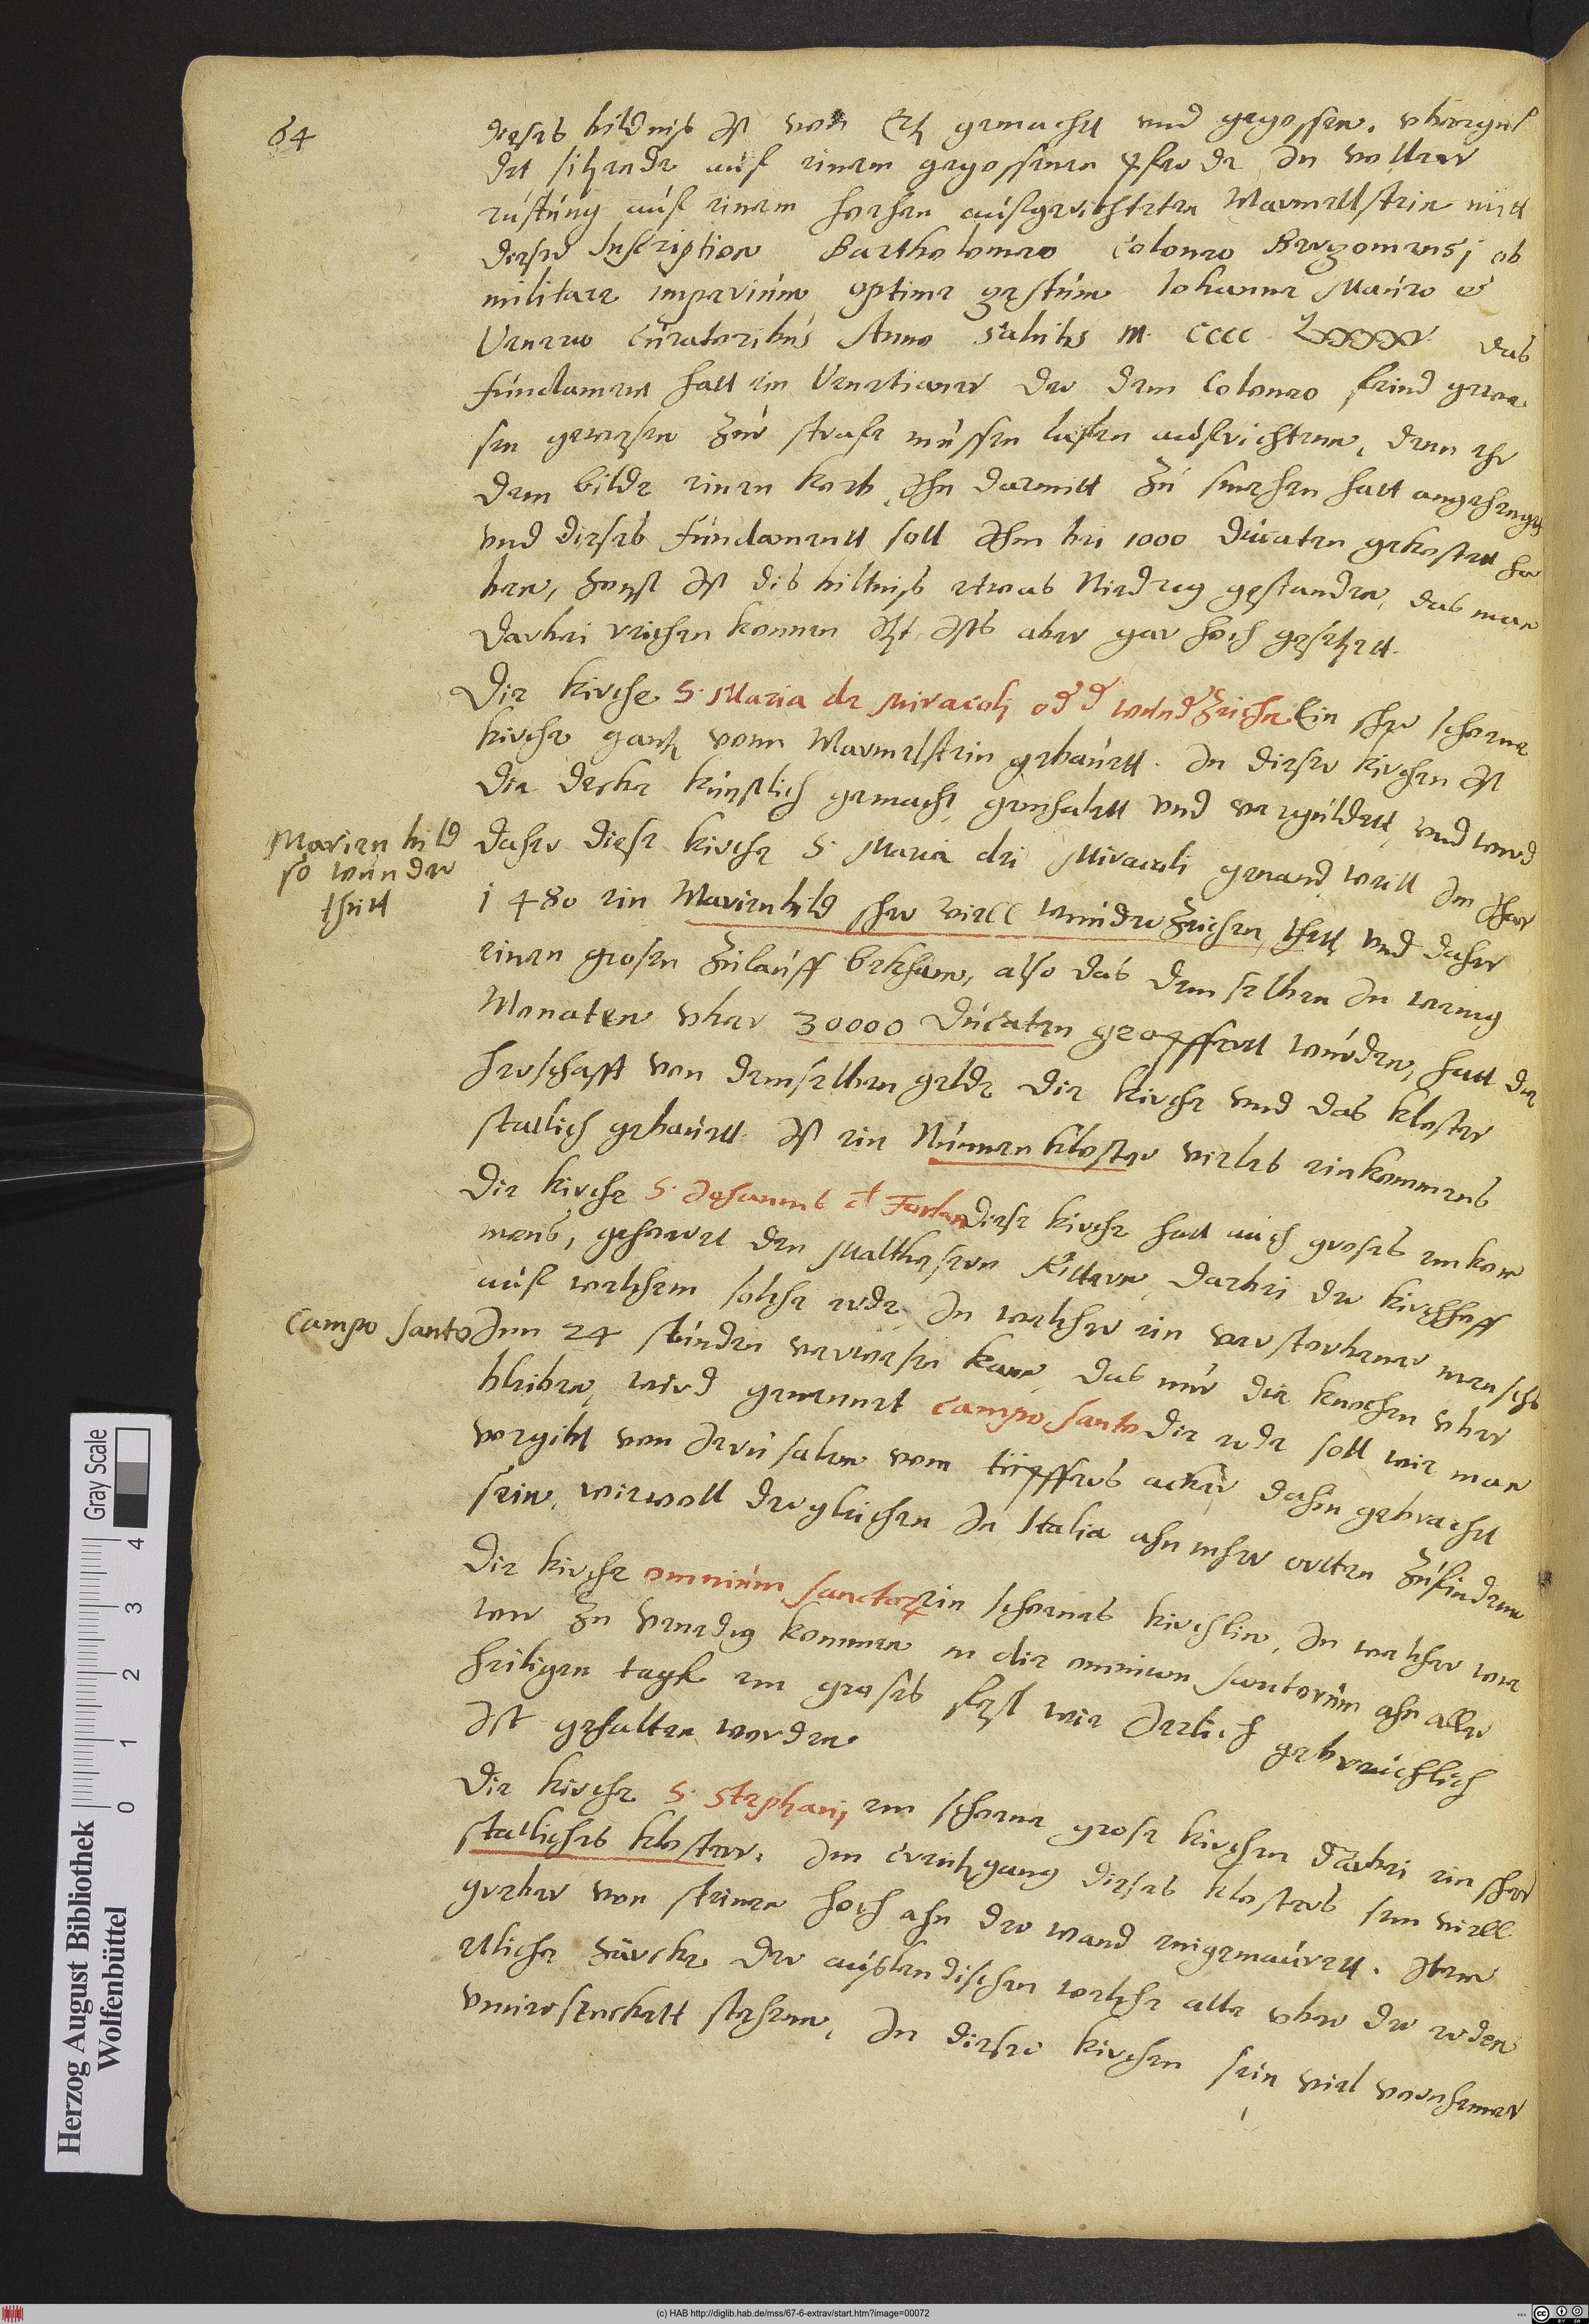 64
dieses bildnis ist von Ertz gemacht und gegossen. vberguld
det sitzende auf einem gegossenen Pferde in voller
rüstúng aúf einem hochen aufgerichteten Marmellstein mitt
dieser Inscription Bartholomeo Coloneo Bergomensi ob
militare imperiúm optime gestúm Iohanne Maúro et
Venerio Cúratoribús Anno Salutis M. CCCC LXXXXV. das
fúndament hatt ein Venetianer der dem Coloneo feind gewe
sen gewesen zúr strafe müssen lasen aufrichten, den ehr
dem bilde einen korb, ihn darmitt zu schmehen hatt angehengt
und dieses fúndamentt soll ihm bei 1000 Dúcaten gekostett ha
ben, sonst ist dis biltnis etwas Niedrig gestanden, das man
darbei reichen konnen itzt ists aber gar hoch gesetzett.
Die kirche S. Maria de Miracolj oder wunderzeichen Ein sehr schone
kirche gantz vonn Marmelstein gebaúett. In dieser kirchen ist
die decke künstlich gemacht, gemhalett und vergúldett, und werd
daher diese kirche S. Maria dei Miracoli genand weill im Jhar
1480 ein Marienbild sehr viell wúnderzeichen thett und daher
einen grosen zúlaúff bekham, also das demselben in wenig
Monaten vber 30000 Dúcaten geopffertt wúrden, hatt die
herschafft von demselben gelde die kirche und das kloster
statlich gebaúett. Ist ein Núnnenkloster vieles einkommens
Marien bild
so wúnder
thútt
Die kirche S. Johannis d Forlan diese kirche hatt aúch groses einkom
mens, gehorett den Malthesern Rittern, darbei der kirchhoff
aúf welchem solche erde, in welcher ein verstorbener mensch
Campo Santo
Inn 24 stúnden verwesen kann, das núr die knochen vber
bleiben, wird genennet Campo Santo die erde soll wie man
vorgibt von Jerúsalem vom töpffers acker dahin gebracht
sein, wiewoll dergleichen in Italia ahn mehr ortten zúfinden
Die kirche omniúm Sanctorum ein schones kirchlin, in welcher wie
wir zu Venedig kommen in die omnium Santorúm ahn aller
heiligen tagk ein groses fest wie Jerlich gebreúchlich
Ist gehalten worden.
Die kirche S. Stephani, ein schone grose kirchen darbei ein sehr
statliches kloster. Im Creútzgang dieses klosters sein viell
greber von steinen hoch ahn der wand eingemaúrett. Item
etliche särcke der aúslendischen welche alle vber der erden
unversenckett stehenn, In dieser kirchen sein viel vornhemer
Herzog August Bibliothek
Wolfenbüttel
Gray Scale
0 1 2 3 4
(c) HAB http://diglib.hab.de/mss/67-6-extrav/start.htm?image=00072